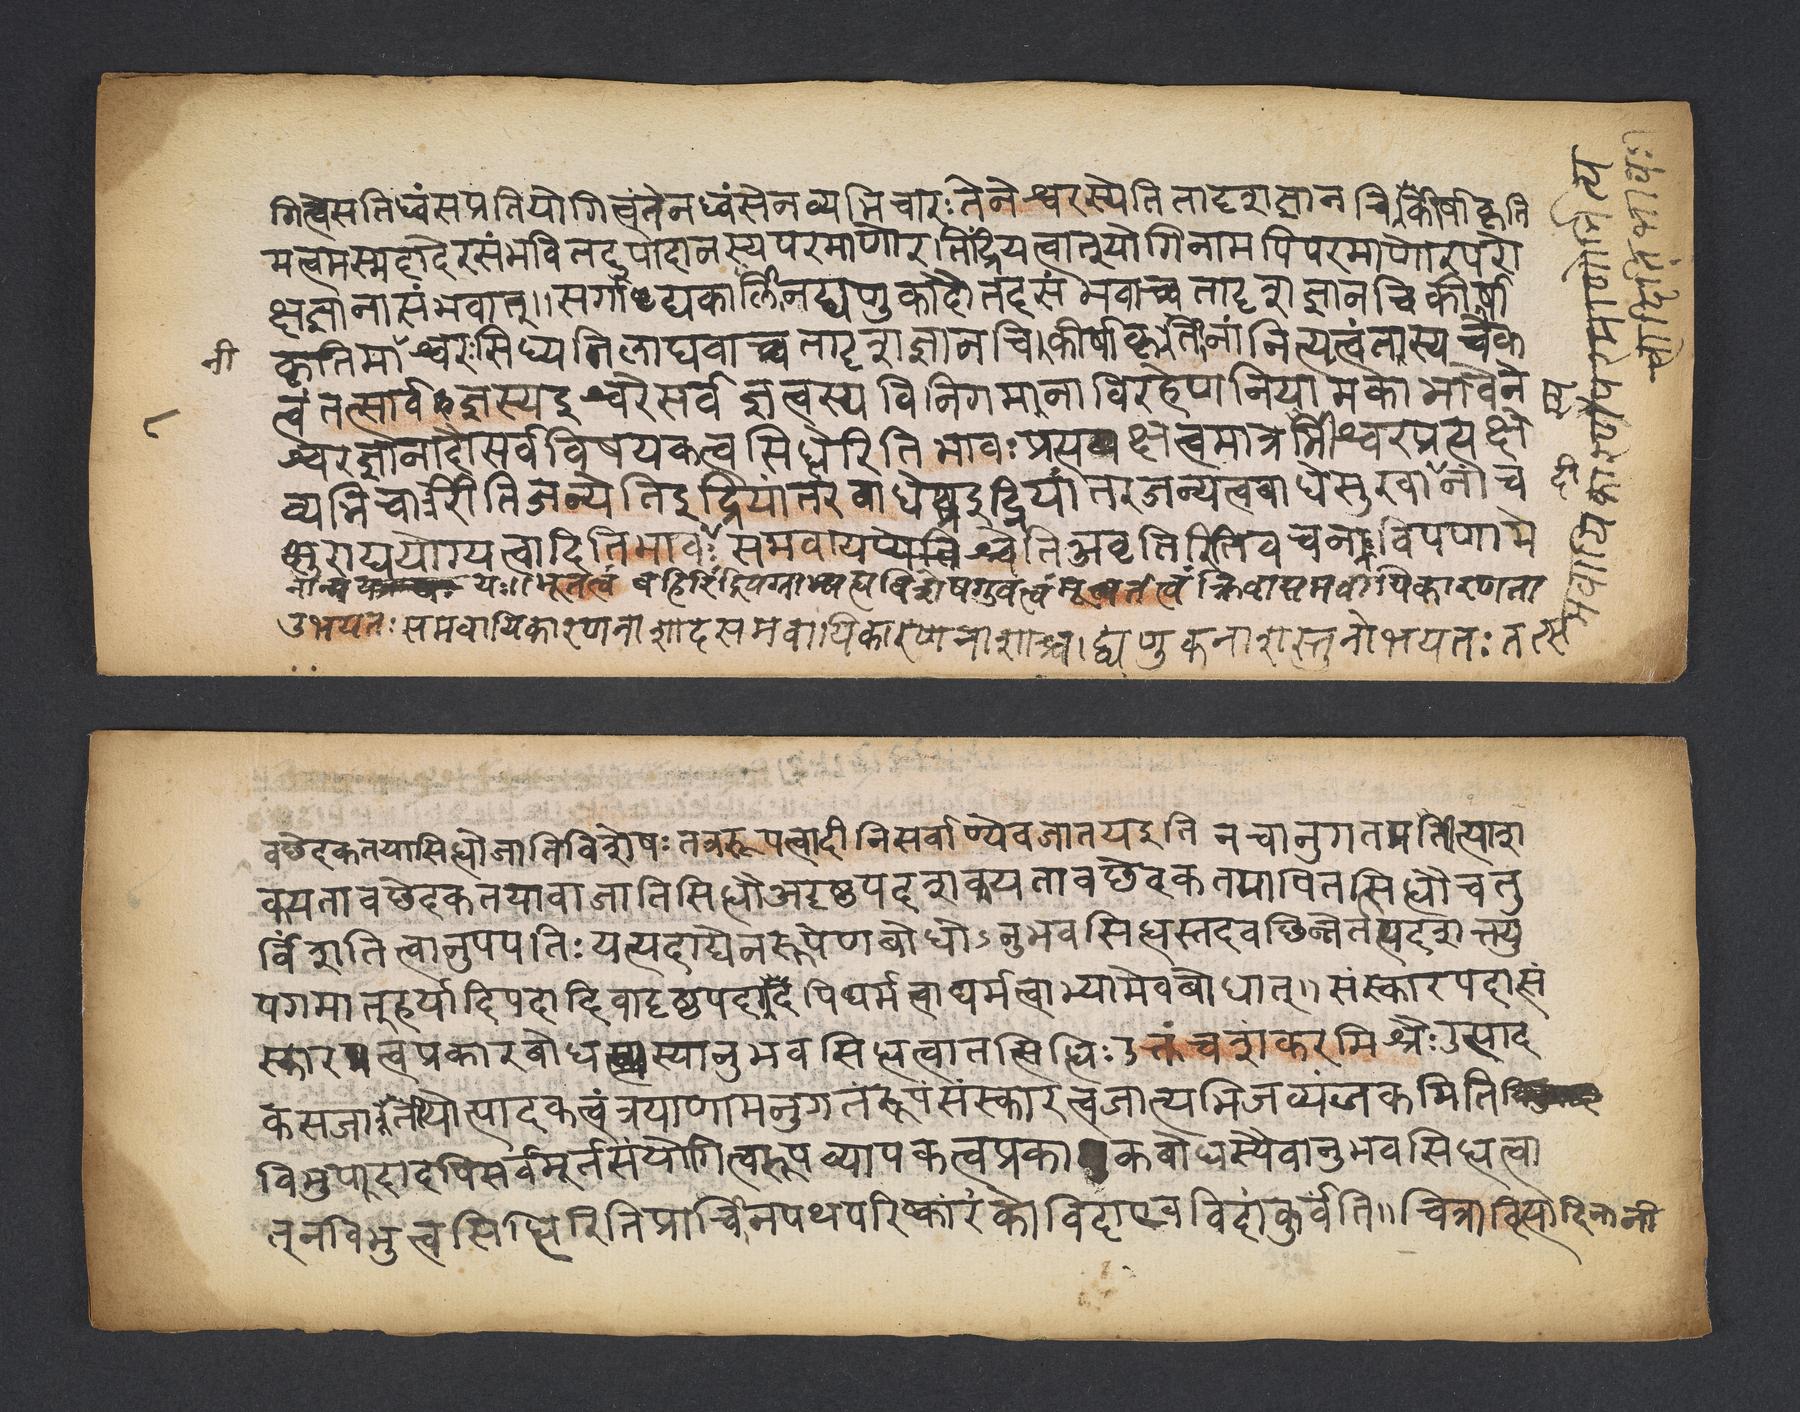 गित्वेसतिध्वंसप्रतियोगित्वंतेनध्वंसेनव्यभिचारःतेनेश्वरस्येतितादृशज्ञानचिकीर्षाकृति
मत्वमस्मदादेरसंभवितदुपादानस्यपरमाणोरतींद्रियत्वात्योगिनामपिपरमाणोरपरो
क्षज्ञानासंभवात्॥सर्गाद्यकालिनद्व्यणुकादौतदसंभवाच्चतादृशज्ञानचिकीर्षा
कृतिमाँश्वरःसिध्यतिलाघवाच्चतादृशज्ञानचिकीर्षाकृतिनांनित्यत्वंतास्यचैक
नी
त्वंतत्सार्वज्ञस्यइश्वरेसर्वज्ञत्वस्यविनिगमानाविरहेपानियामकाभावेने
श्वरज्ञानादौसर्वविषयकत्वसिद्धेरितिभावःप्रत्यक्षत्वमात्रमीश्वरप्रत्यक्षे
व्यभिचारीतिजन्येतिइंद्रियांतरबाधेइंद्रियांतरजन्यत्वबाधेसुखानांच
क्षुराद्ययोग्यत्वादितिभावःसमवायप्यतिश्चेतिअवृत्तिरितिवचनाविपणामे
यः॥भूतत्वंबहिरिंद्रियग्राह्यविशेषगुवत्वंमूर्तत्वंक्रियासमवायिकारणता
उभयतःसमवायिकारणनाशादसमवायिकारणनाशाच्च।द्व्यणुकनाशस्तुनोभयतःतत्स
मवायिकारणपरमाणोर्नित्य
त्वादितिभावः
दी
वछेदकतयासिद्धोजातिविशेषःतत्ररूपत्वादीनिसर्वाण्येवजातयइति नचानुगतप्रतीत्याश
क्यतावछेदकतयावाजातिसिद्धौअदृष्टपदशक्यतावछेदकतयापितत्सिद्धौचतु
र्विंशतित्वानुपपतिःयत्पदाद्येनरूपेणबोधोऽनुभवसिद्धस्तदवछिन्नेतत्पदशक्त्यु
पगमात्हर्यादिपदादिवादृष्टपदादपिधर्मत्वाधर्मत्वाभ्यामेवबोधात्॥संस्कारपदासं
स्कारत्वप्रकारबोधस्यानुभवसिद्धत्वातत्सिद्धिःउक्तंचशंकरमिश्रैःउत्पाद
कसजातीयोत्पादकत्वंत्रयाणामनुगतंरूपंसंस्कारत्वजात्यभिजव्यंजकमिति
विभुपादादपिसर्वमूर्तसंयोगित्वरूपव्यापकत्वप्रकारकबोधस्यैवानुभवसिद्धत्वा
त्नविभुत्वसिद्धिरितिप्राचिनपथपरिष्कारंकोविदाएवविदांकुर्वंति॥चित्रा